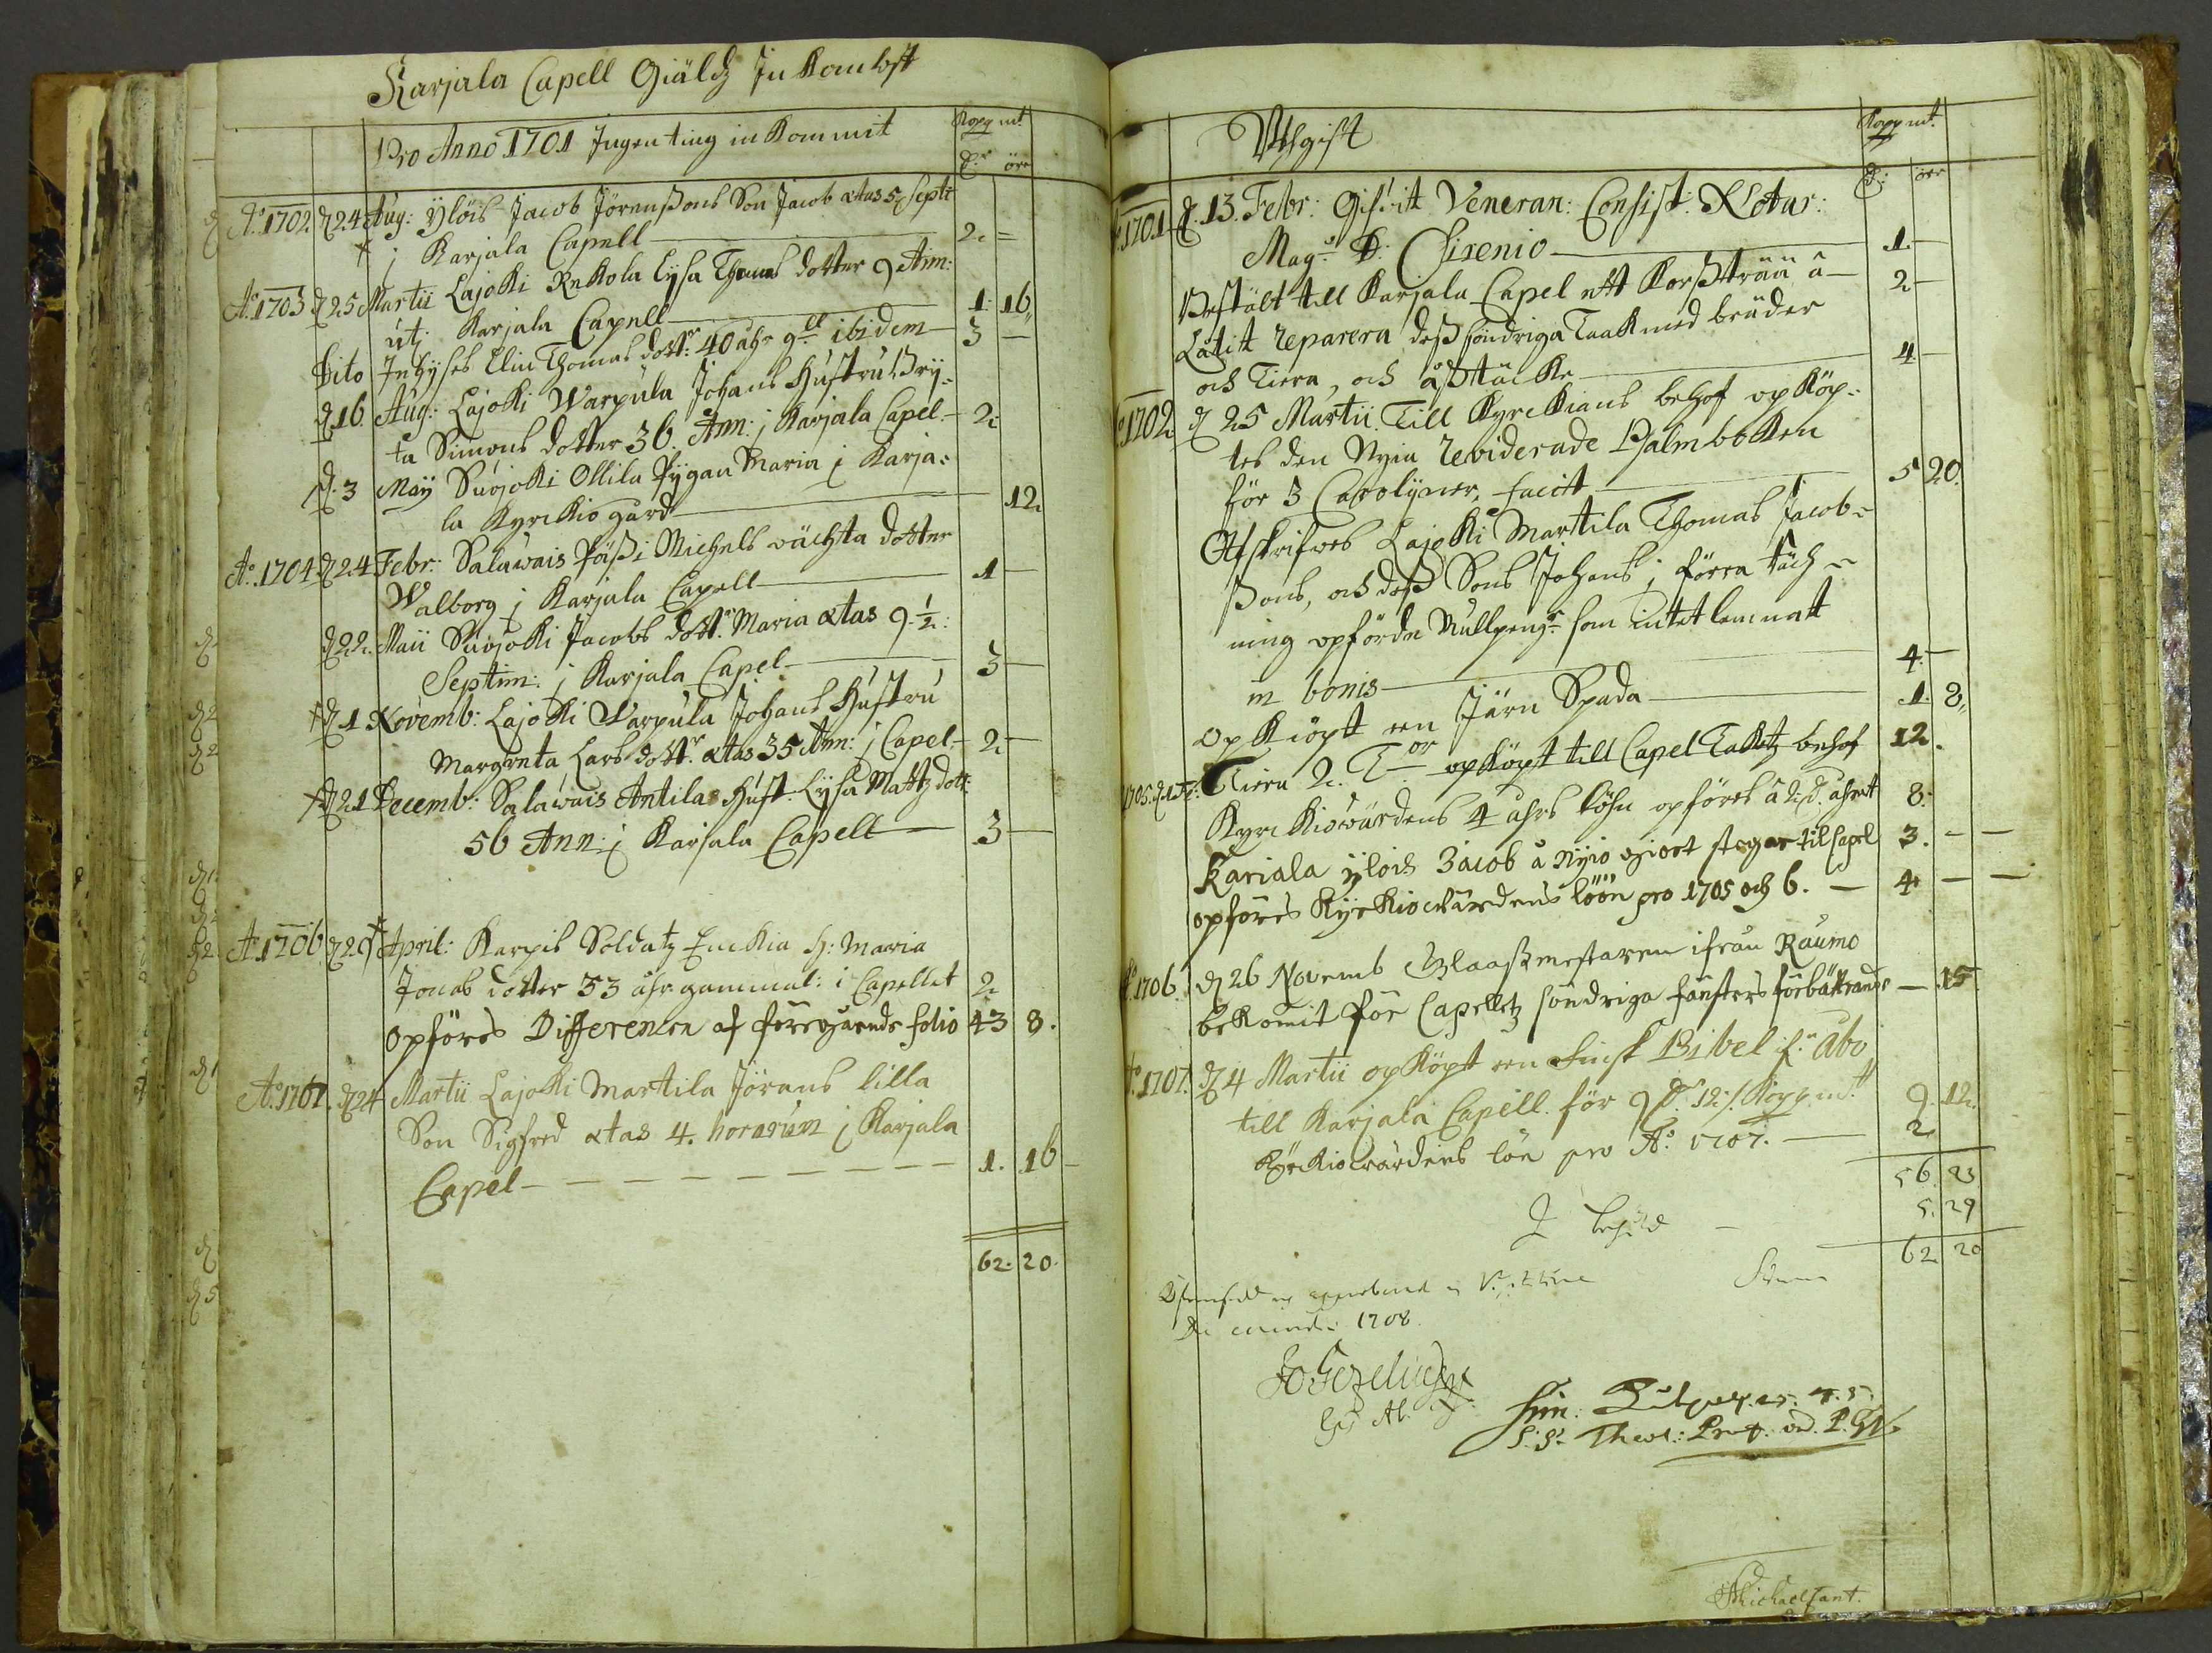 Karjala Capell Giäldz Inkombst
Kopp mt.
Pro Anno 1701 Ingen ting inkommit
D.r öre
A:o 1702. d 24 Aug: Ylöis Jacob Jörenßons Son Jacob ætas 5 Septi
j Karjala Capell 2. =
A:o 1703 d 25 Martii Lajoki Rekola Lijsa Thomas dotter 9 Ann:
utj Karjala Capell 1. 16,
Dito Inhyses Elin Thomas dott:r 40 åhr g:ll ibidem 3 —
d 16. Aug: Lajoki Warpula Johans Hustru Bry-
ta Simons dotter 36. Ann: j Karjala Capel 2.
d. 3 Maij Suojoki Ollila Pygan Maria j Karja-
la Kyrkiogård 12.
A:o 1704 d 24 Febr: Salawais Päßi Michels ächta dotter
Walborg j Karjala Capell 1 —
d 22. Maii Suojoki Jacobs dott:r Maria ætas 9 1/2:
Septim: j Karjala Capel 3 —
d 1 Novemb: Lajoki Warpula Johans Hustru
Margreta Lars dott:r ætas 35 Ann: j Capel 2 —
d 21 Decemb: Salawais Antilas Hust. Lijsa Mattz dott:
56 Ann: j Karjala Capell 3 —
A:o 1706 d 29 April: Karpis Soldatz Enckia H: Maria
Jonas dotter 53 åhr gammal: i Capellet 2
opföres Differencen af föregående folio 43 8.
A:o 1707. d 24 Martii Lajoki Martila Jörans lilla
Son Sigfred ætas 4. horarum j Karjala
Capel 1. 16
62. 20.
Uthgift
Kopp mt.
D: örr
1701 d. 13. Febr: Gifwit Veneran: Consist: Notar:
Mag:r D: Cirenio 1. —
Bestält till Karjala Capel ett Korßträä â 2 —
Låtit reparera deß söndriga Taak med bräder
och Tiera, och åßtäcke 4 —
1702 d 25 Martii Till Kyrckians behof opköp-
tes den Nyia reviderade Psalmboken
för 3 Carolijner, facit 5 20.
Afskrifwes Lajoki Martila Thomas Jacob-
ßons, och deß Sons Johans j förra räch-
ning opförde Kullpeng:r som intet lemnatt
in bonis 4. —
opkiöpt een Järn Spada 1. 8,
1705. Tiera 2. T:or opköpt till Capel Taketz behof 12.
Kyrckiowärdens 4 åhrs löhn opföres â 2 d. åhret 8.
Kariala ylois Jacob å nyio giort stegar til Capel 3. —
opföres Kyrkiowärdens löön pro 1705 och 6. — 4 —
1706. d 26 Novemb Glaaßmestaren ifrån Raumo
bekomit för Capelletz söndriga fänsters förbättrande — 15
1707. d 4 Martii opköpt een Finsk Bibel if:n Åbo
till Karjala Capell. för 9 D:r 12./. Kopp mt. 9. 12.
Kyrkiowärdens lön pro A:o 1707. 2
56. 23
5. 29
Summa 62. 20
1708.
Jo Gezelius
Ep Ab.
S:S: Theol: Prof.
Michael Cant.